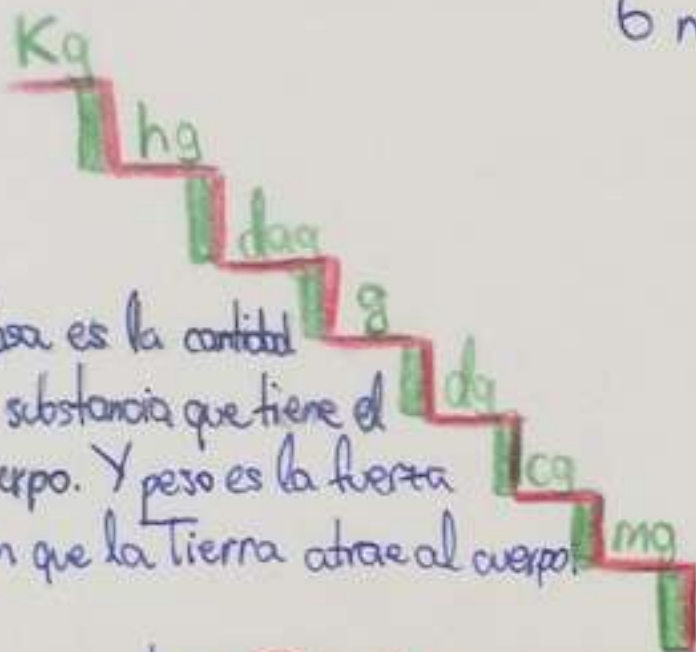 6
Kg
hg
dag
g
dg
cg
mg
es la cantidad
substancia que tiene el
Y peso es la fuerza
que la Tierra atrae al cuerpo.